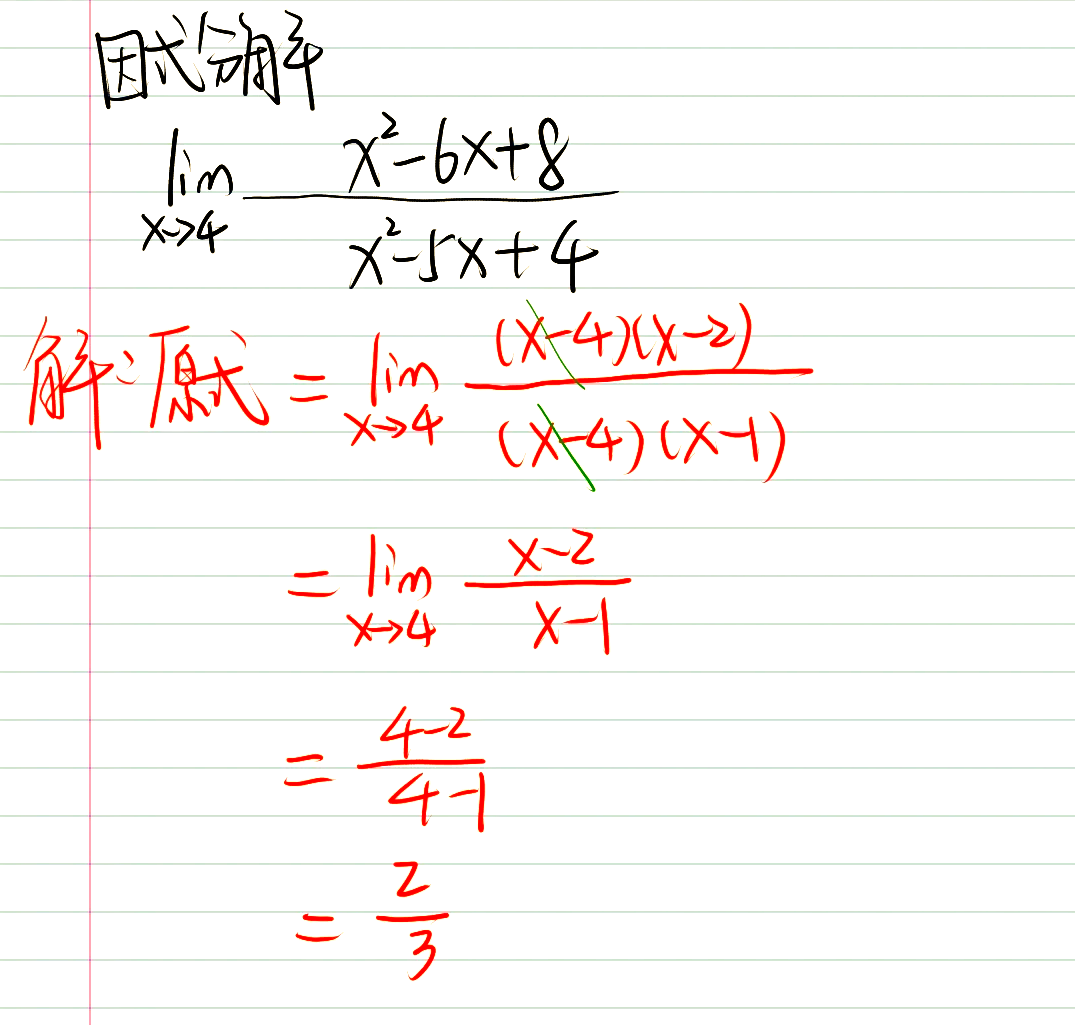 因式分解
lim x→4 (x²-6x+8)/(x²-5x+4)
解:原式 = lim x→4 ((x-4)(x-2))/((x-4)(x-1))
= lim x→4 (x-2)/(x-1)
= (4-2)/(4-1)
= 2/3